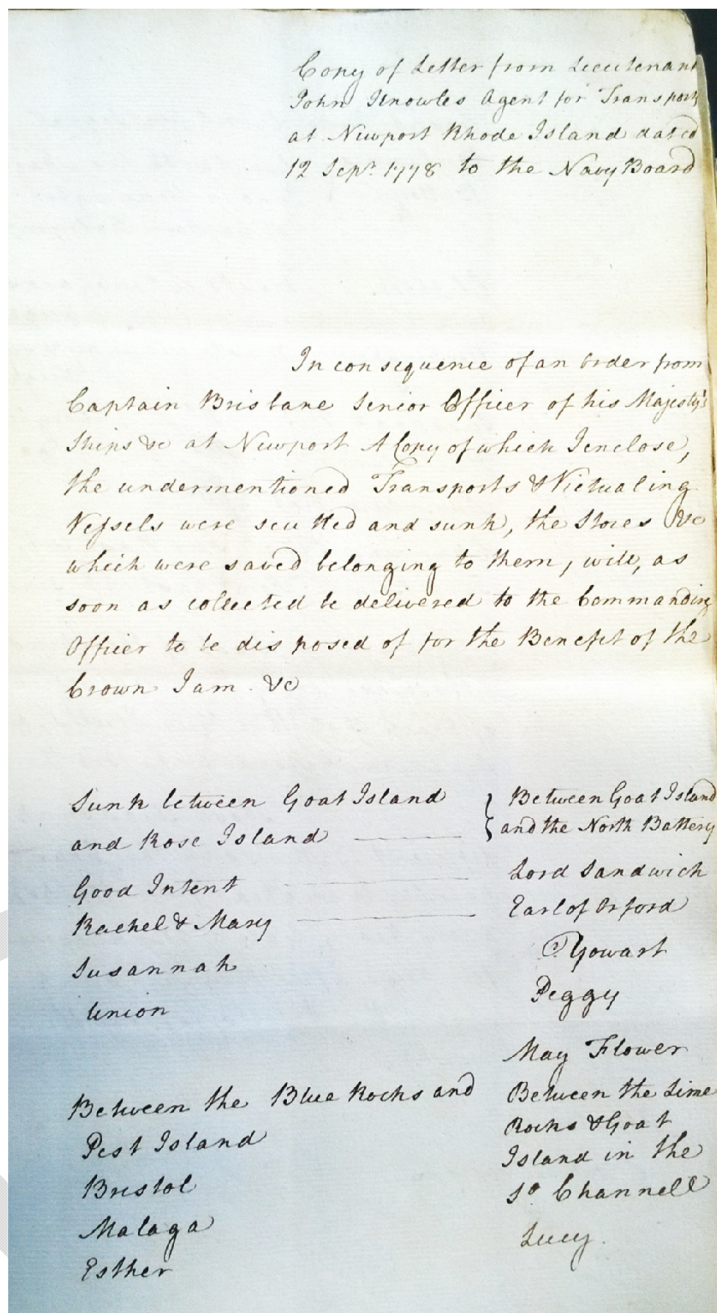 Copy of Letter from Lieutenant
John Knowles Agent for Transports
at Newport Rhode Island dated
12 Sepr. 1778 to the Navy Board
In consequence of an Order from
Captain Brisbane Senior Officer of his Majesty's
Ships &c at Newport A Copy of which I enclose,
the undermentioned Transports & Victualing
Vessels were scuttled and sunk, the Stores &c
which were saved belonging to them, will, as
soon as collected be delivered to the Commanding
Officer to be disposed of for the Benefit of the
Crown I am &c
Sunk between Goat Island
and Rose Island
Good Intent
Rachel & Mary
Susannah
Union
Between the Blue Rocks and
Pest Island
Bristol
Malaga
Esther
Between Goat Island
and the North Battery
Lord Sandwich
Earl of Orford
Yowart
Peggy
May Flower
Between the Lime
Rocks & Goat
Island in the
So. Channell
Lucy.